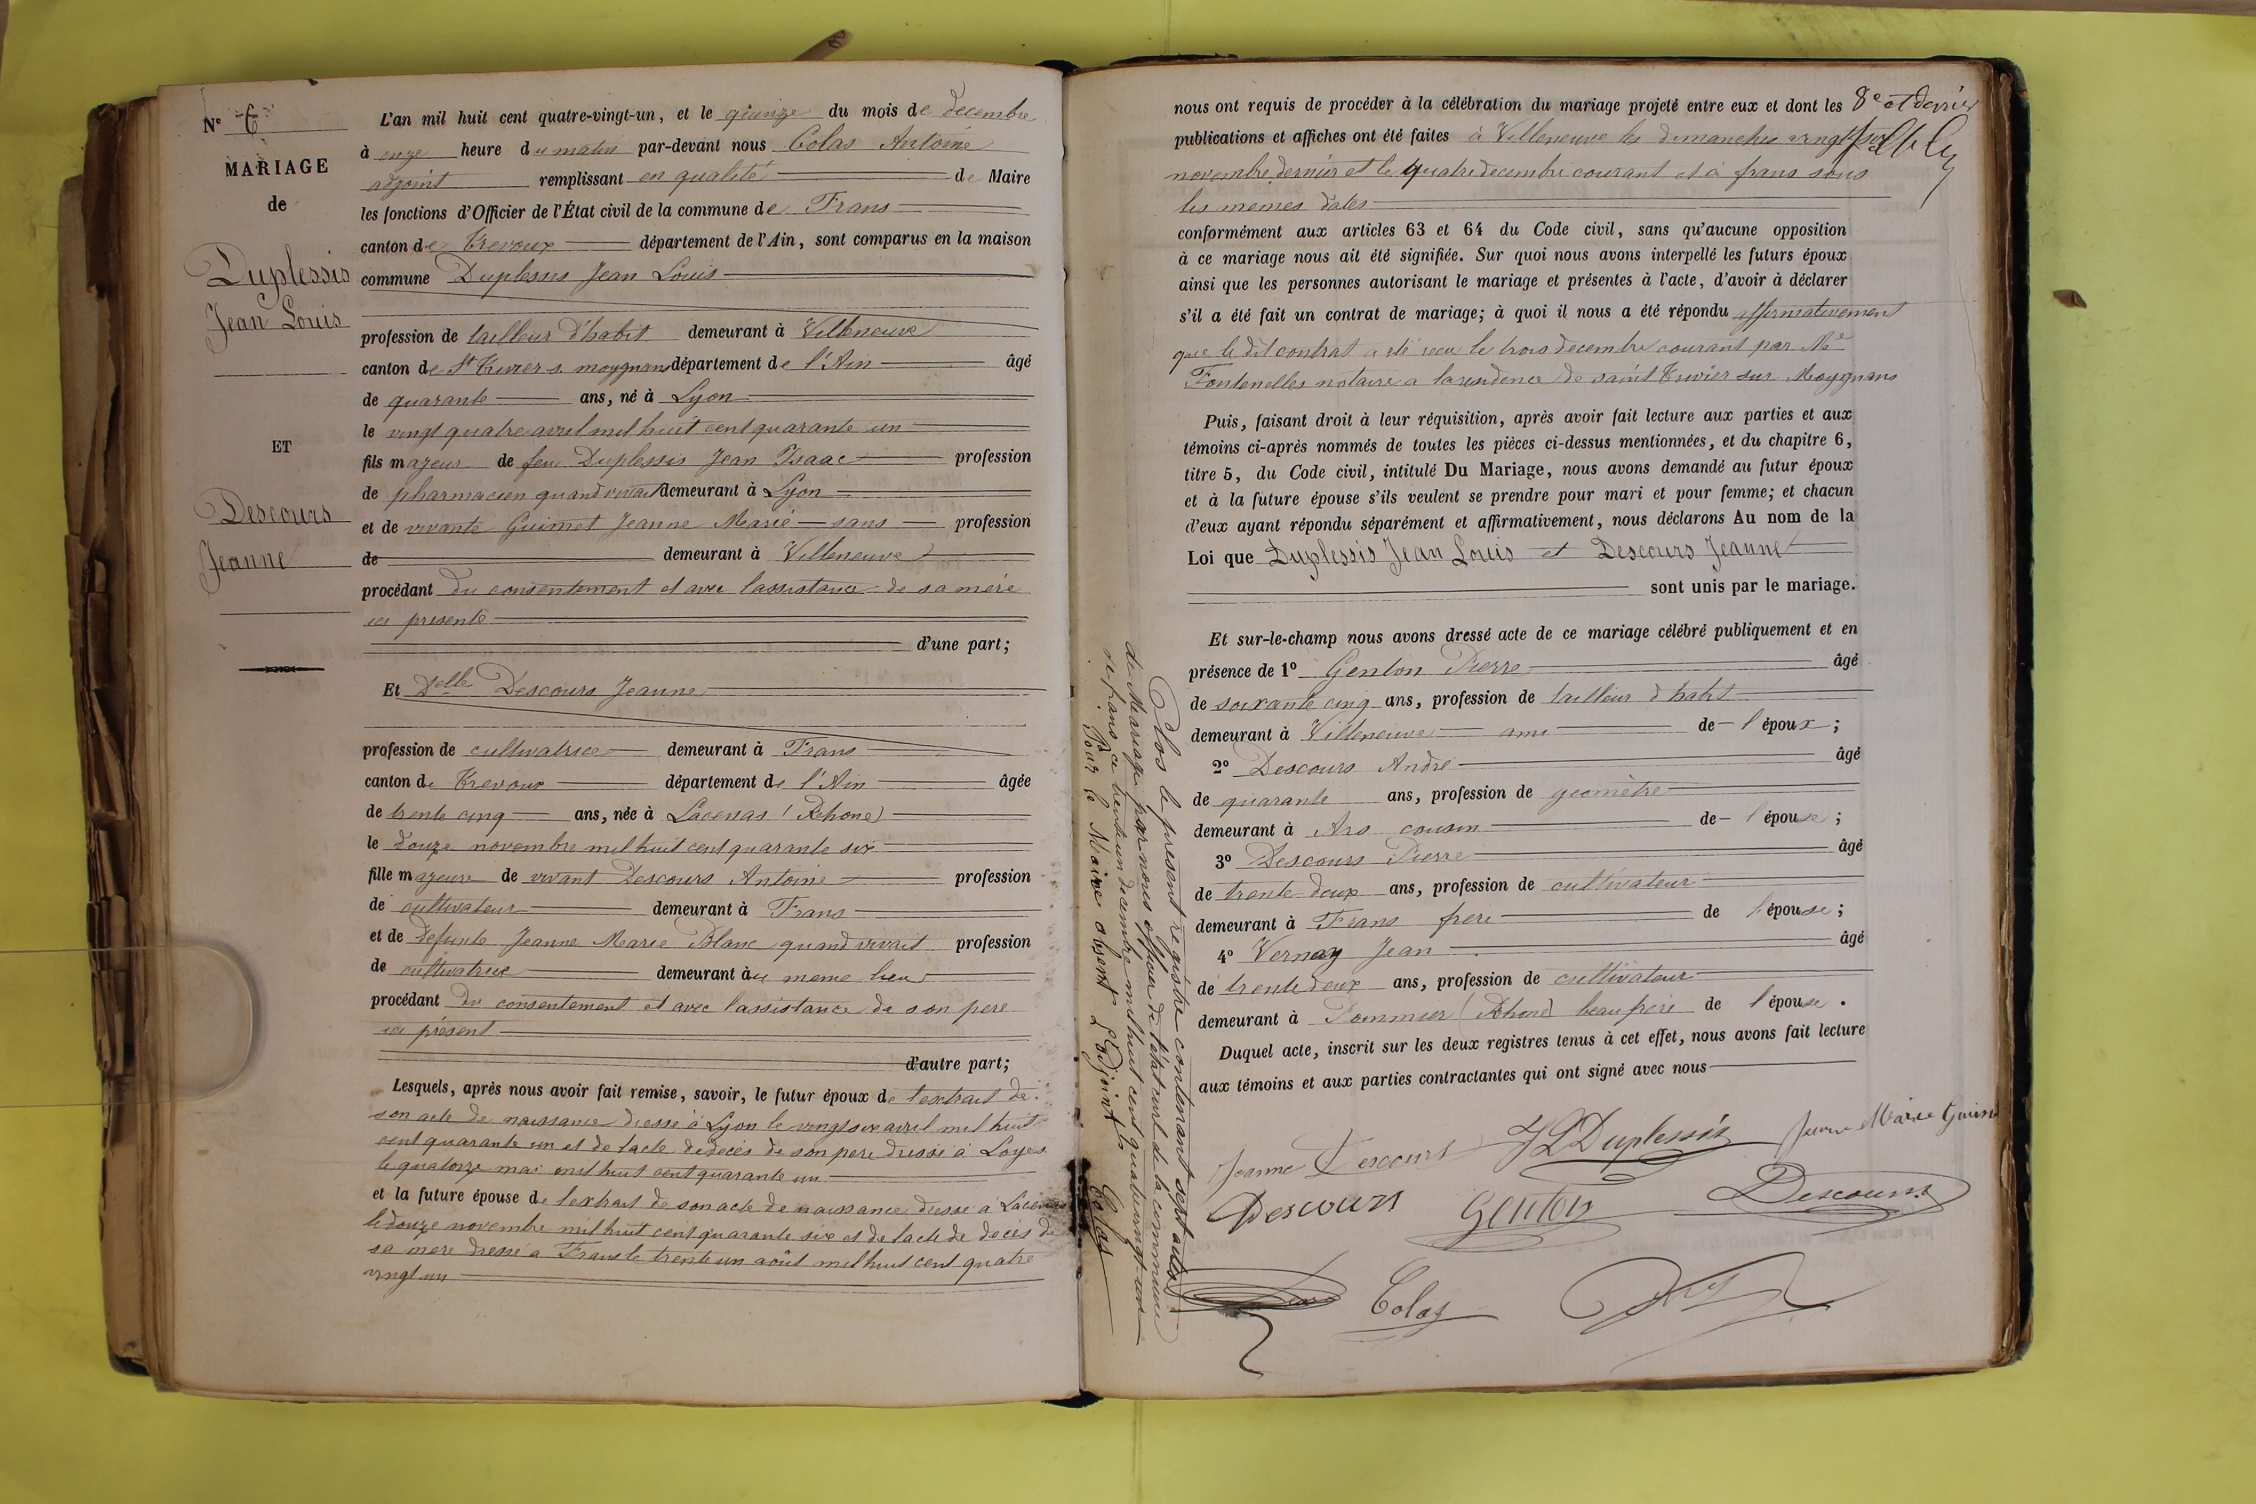 Nº 6
MARIAGE
de
Duplessis
Jean Louis
ET
Descours
Jeanne
L'an mil huit cent quatre-vingt-un, et le quinze du mois de decembre
à onze heure du matin par-devant nous Colas Antoine
adjoint remplissant en qualité de Maire
les fonctions d'Officier de l'État civil de la commune de Frans
canton de Trevoux département de l'Ain, sont comparus en la maison
commune Duplessis Jean Louis
profession de tailleur d'habit demeurant à Villeneuve
canton de St Trivier s. moygnans département de l'Ain âgé
de quarante ans, né à Lyon
le vingt quatre avril mil huit cent quarante un
fils majeur de feu Duplessis Jean Isaac profession
de pharmacien quand vivait demeurant à Lyon
et de vivante Guimet Jeanne Marie sans profession
de demeurant à Villeneuve
procédant du consentement et avec l'assistance de sa mère
ici presente
d'une part;
Et Delle Descours Jeanne
profession de cultivatrice demeurant à Frans
canton de Trevoux département de l'Ain âgée
de trente cinq ans, née à Lacenas (Rhone)
le douze novembre mil huit cent quarante six
fille majeure de vivant Descours Antoine profession
de cultivateur demeurant à Frans
et de defunte Jeanne Marie Blanc quand vivait profession
de cultivatrice demeurant au meme lieu
procédant du consentement et avec l'assistance de son pere
ici présent
d'autre part;
Lesquels, après nous avoir fait remise, savoir, le futur époux de l'extrait de
son acte de naissance dressé à Lyon le vingt six avril mil huit
cent quarante un et de l'acte de décès de son pere dressé à Loyes
le quatorze mai mil huit cent quarante un
et la future épouse de l'extrait de son acte de naissance dressé à Lacenas
le douze novembre mil huit cent quarante six et de l'acte de décès de
sa mere dressé a Frans le trente un août mil huit cent quatre
vingt un
8e et dernier
nous ont requis de procéder à la célébration du mariage projeté entre eux et dont les
publications et affiches ont été faites à Villeneuve les dimanches vingt sept
novembre dernier et le quatre decembre courant et à frans sous
les memes dates
conformément aux articles 63 et 64 du Code civil, sans qu'aucune opposition
à ce mariage nous ait été signifiée. Sur quoi nous avons interpellé les futurs époux
ainsi que les personnes autorisant le mariage et présentes à l'acte, d'avoir à déclarer
s'il a été fait un contrat de mariage; à quoi il nous a été répondu affirmativement
que le dit contrat a été recu le trois decembre courant par Me
Fontenelles notaire a la residence de saint Trivier sur Moygnans
Puis, faisant droit à leur réquisition, après avoir fait lecture aux parties et aux
témoins ci-après nommés de toutes les pièces ci-dessus mentionnées, et du chapitre 6,
titre 5, du Code civil, intitulé Du Mariage, nous avons demandé au futur époux
et à la future épouse s'ils veulent se prendre pour mari et pour femme; et chacun
d'eux ayant répondu séparément et affirmativement, nous déclarons Au nom de la
Loi que Duplessis Jean Louis et Descours Jeanne
sont unis par le mariage.
Et sur-le-champ nous avons dressé acte de ce mariage célébré publiquement et en
présence de 1º Genton Pierre âgé
de soixante cinq ans, profession de tailleur d'habit
demeurant à Villeneuve ami de l'époux;
2º Descours André âgé
de quarante ans, profession de geomètre
demeurant à Ars cousin de l'épouse;
3º Descours Pierre âgé
de trente deux ans, profession de cultivateur
demeurant à Frans frere de l'épouse;
4º Vernay Jean âgé
de trente deux ans, profession de cultivateur
demeurant à Pommier (Rhone) beau frere de l'épouse.
Duquel acte, inscrit sur les deux registres tenus à cet effet, nous avons fait lecture
aux témoins et aux parties contractantes qui ont signé avec nous
Jeanne Descours JLDuplessis Jeanne Marie Guimet
Descours Genton Descours
Colas
Clos le present registre contenant sept actes
de Mariage par nous officier de l'état civil de la commune
de frans ce trente un decembre mil huit cent quatre vingt-un
Pour le Maire absent L'adjoint
Colas